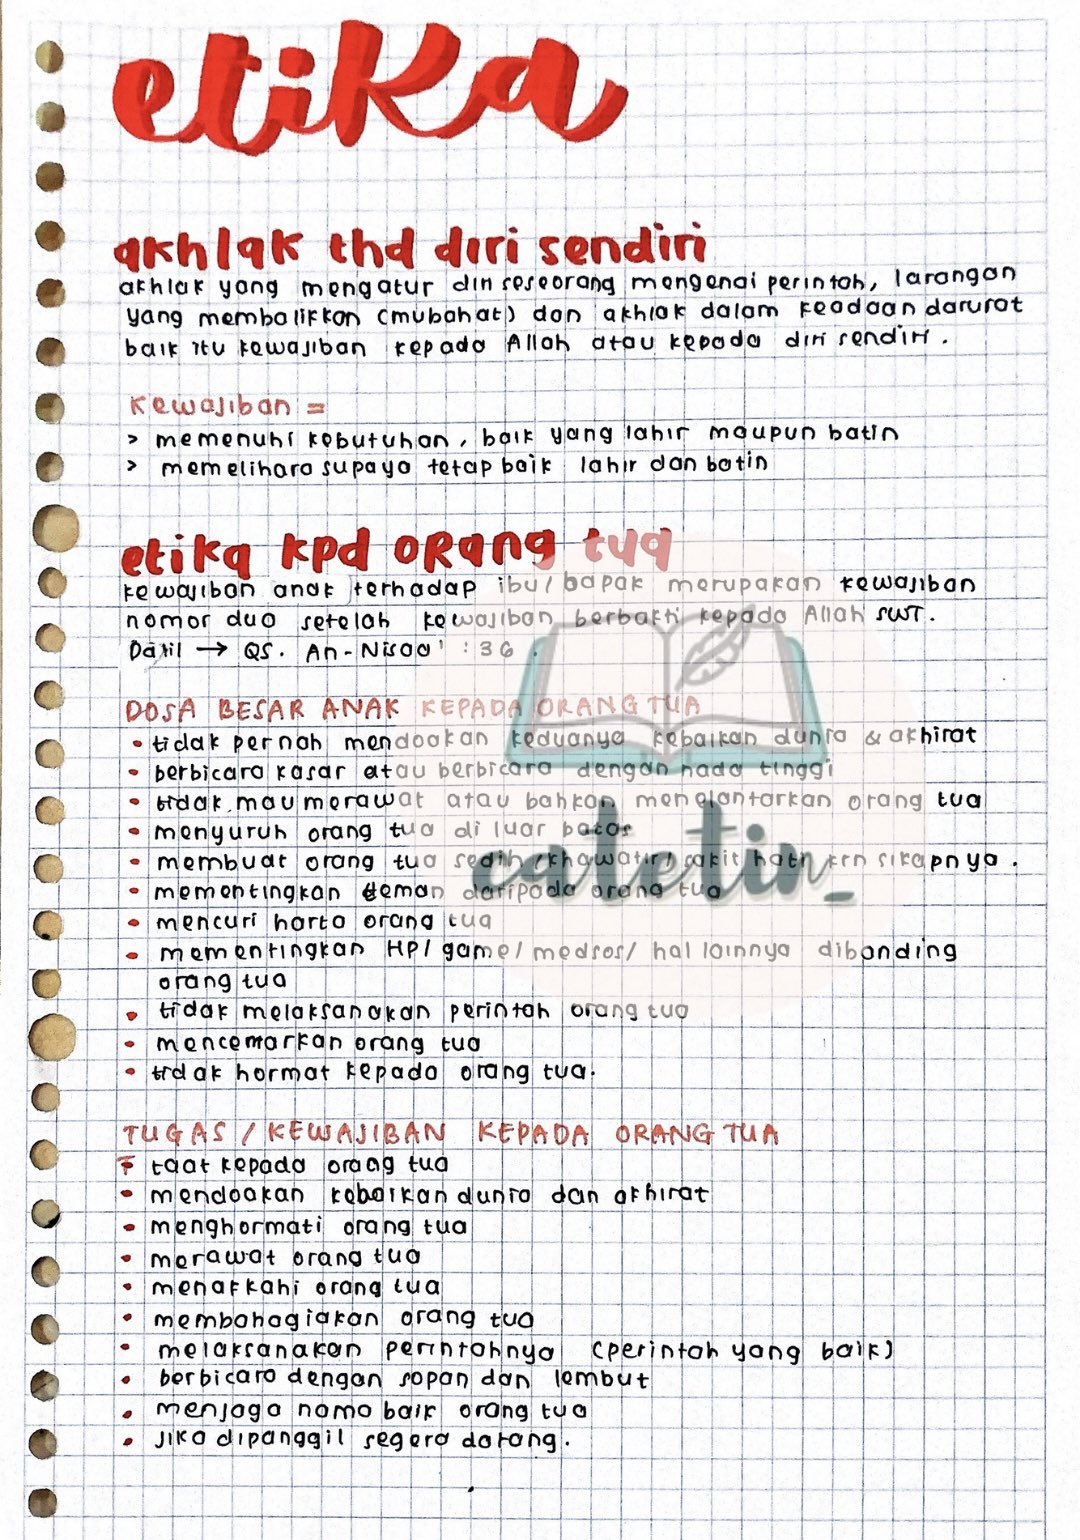 etika
akhlak thd diri sendiri
akhlak yang mengatur diri seseorang mengenai perintah, larangan
yang membalikkan (mubahat) dan akhlak dalam keadaan darurat
baik itu kewajiban kepada Allah atau kepada diri sendiri.
Kewajiban =
> memenuhi kebutuhan, baik yang lahir maupun batin
> memelihara supaya tetap baik lahir dan batin
etika kpd orang tua
kewajiban anak terhadap ibu/bapak merupakan kewajiban
nomor dua setelah kewajiban berbakti kepada Allah SWT.
Dalil → QS. An-Nisaa' : 36.
DOSA BESAR ANAK KEPADA ORANG TUA
• tidak pernah mendoakan keduanya kebaikan dunia & akhirat
• berbicara kasar atau berbicara dengan nada tinggi
• tidak mau merawat atau bahkan menelantarkan orang tua
• menyuruh orang tua di luar batas
• membuat orang tua sedih/khawatir/sakit hati krn sikapnya.
• mementingkan teman daripada orang tua
catetin_
• mencuri harta orang tua
• mementingkan HP/game/medsos/hal lainnya dibanding
orang tua
• tidak melaksanakan perintah orang tua
• mencemarkan orang tua
• tidak hormat kepada orang tua.
TUGAS / KEWAJIBAN KEPADA ORANG TUA
• taat kepada orang tua
• mendoakan kebaikan dunia dan akhirat
• menghormati orang tua
• merawat orang tua
• menafkahi orang tua
• membahagiakan orang tua
• melaksanakan perintahnya (perintah yang baik)
• berbicara dengan sopan dan lembut
• menjaga nama baik orang tua
• jika dipanggil segera datang.